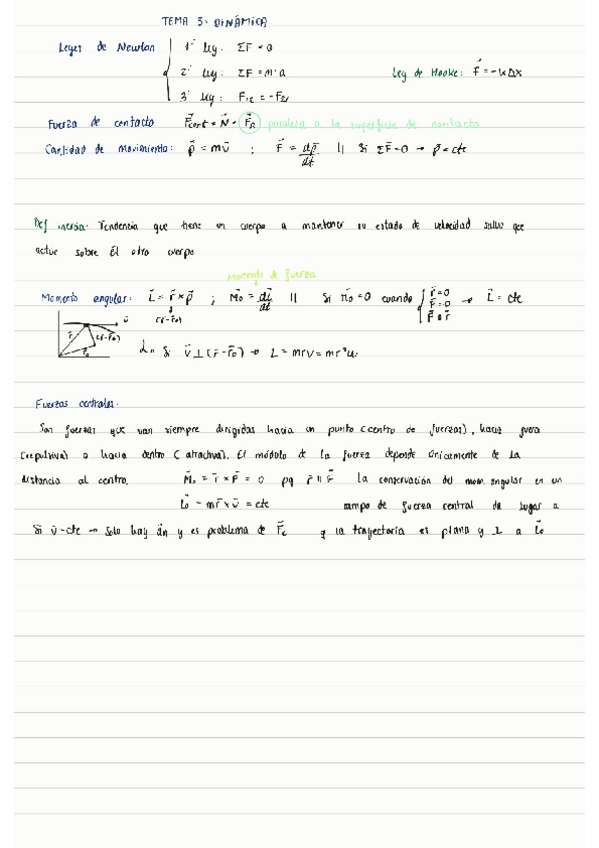 TEMA 3: DINÁMICA
Leyes de Newton
1ª ley: ΣF = 0
2ª ley: ΣF = m·a
3ª ley: F₁₂ = -F₂₁
Ley de Hooke: F⃗ = -kΔx
Fuerza de contacto F⃗cont = N⃗ + F⃗R paralela a la superficie de contacto
Cantidad de movimiento: p⃗ = mv⃗ ; F⃗ = dp⃗/dt || Si ΣF⃗=0 → p⃗ = cte
Def inercia: Tendencia que tiene un cuerpo a mantener su estado de velocidad salvo que
actúe sobre Él otro cuerpo
momento de fuerza
Momento angular: L⃗ = r⃗ × p⃗ ; M⃗o = dL⃗/dt || Si M⃗o = 0 cuando r⃗=0 F⃗=0 F⃗ || r⃗ → L⃗ = cte
(r⃗-r⃗o)
v⃗ r⃗ (r⃗-r⃗o) r⃗o
Si v⃗ ⊥ (r⃗-r⃗o) → L = mrv = mr²ω
Fuerzas centrales:
Son fuerzas que van siempre dirigidas hacia un punto (centro de fuerzas), hacia fuera
(repulsiva) o hacia dentro (atractiva). El módulo de la fuerza depende únicamente de la
distancia al centro. M⃗o = r⃗ × F⃗ = 0 pq r⃗ || F⃗ La conservación del mom. angular en un
L⃗o = mr⃗ × v⃗ = cte campo de fuerza central da lugar a
Si v = cte → Solo hay a⃗n y es problema de F⃗c q la trayectoria es plana y ⊥ a L⃗o